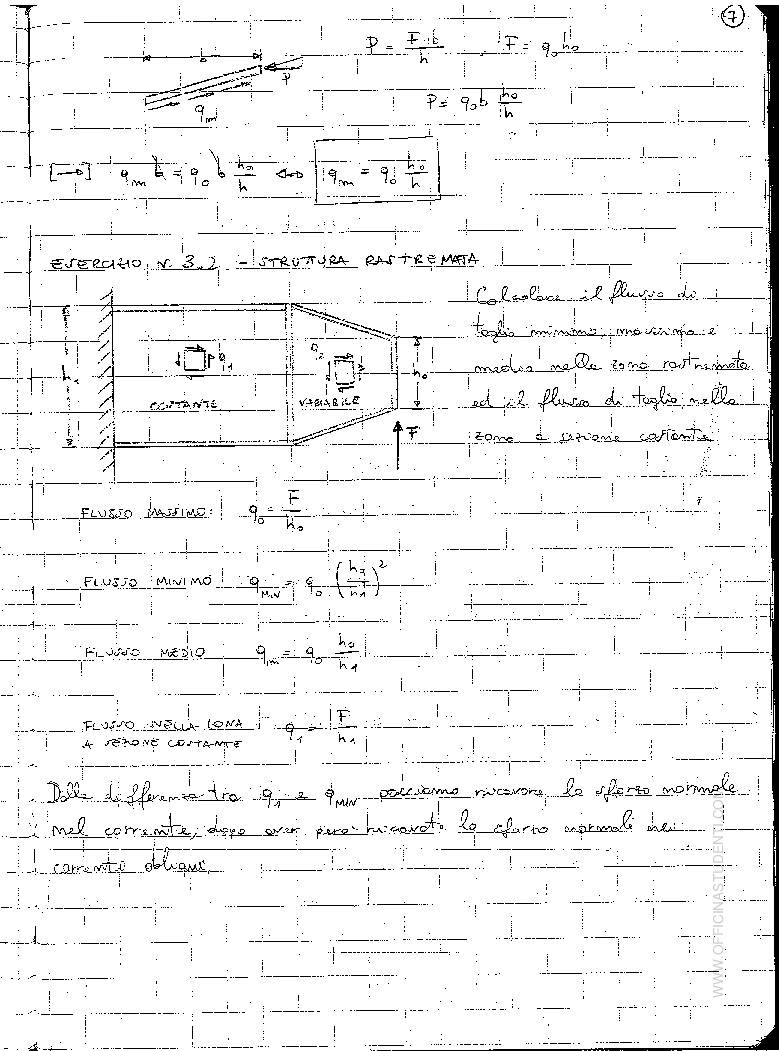 7
b
P = F b / h , F = q0 h0
P
qm
P = q0 b h0/h
[→] qm b = q0 b h0/h ⟺ qm = q0 h0/h
ESERCIZIO N. 3.2 - STRUTTURA RASTREMATA
Calcolare il flusso di
taglio minimo, massimo e
medio nella zona rastremata
ed il flusso di taglio nella
zona a sezione costante
h1
q1
q2
h0
COSTANTE
VARIABILE
F
FLUSSO MASSIMO: q0 = F/h0
FLUSSO MINIMO qMIN = q0 (h0/h1)²
FLUSSO MEDIO qm = q0 h0/h1
FLUSSO NELLA ZONA
A SEZIONE COSTANTE q1 = F/h1
Dalla differenza tra q1 e qMIN possiamo ricavare lo sforzo normale
nel corrente, dopo aver però ricavato lo sforzo normali nei
correnti obliqui.
WWW.OFFICINASTUDENTI.COM